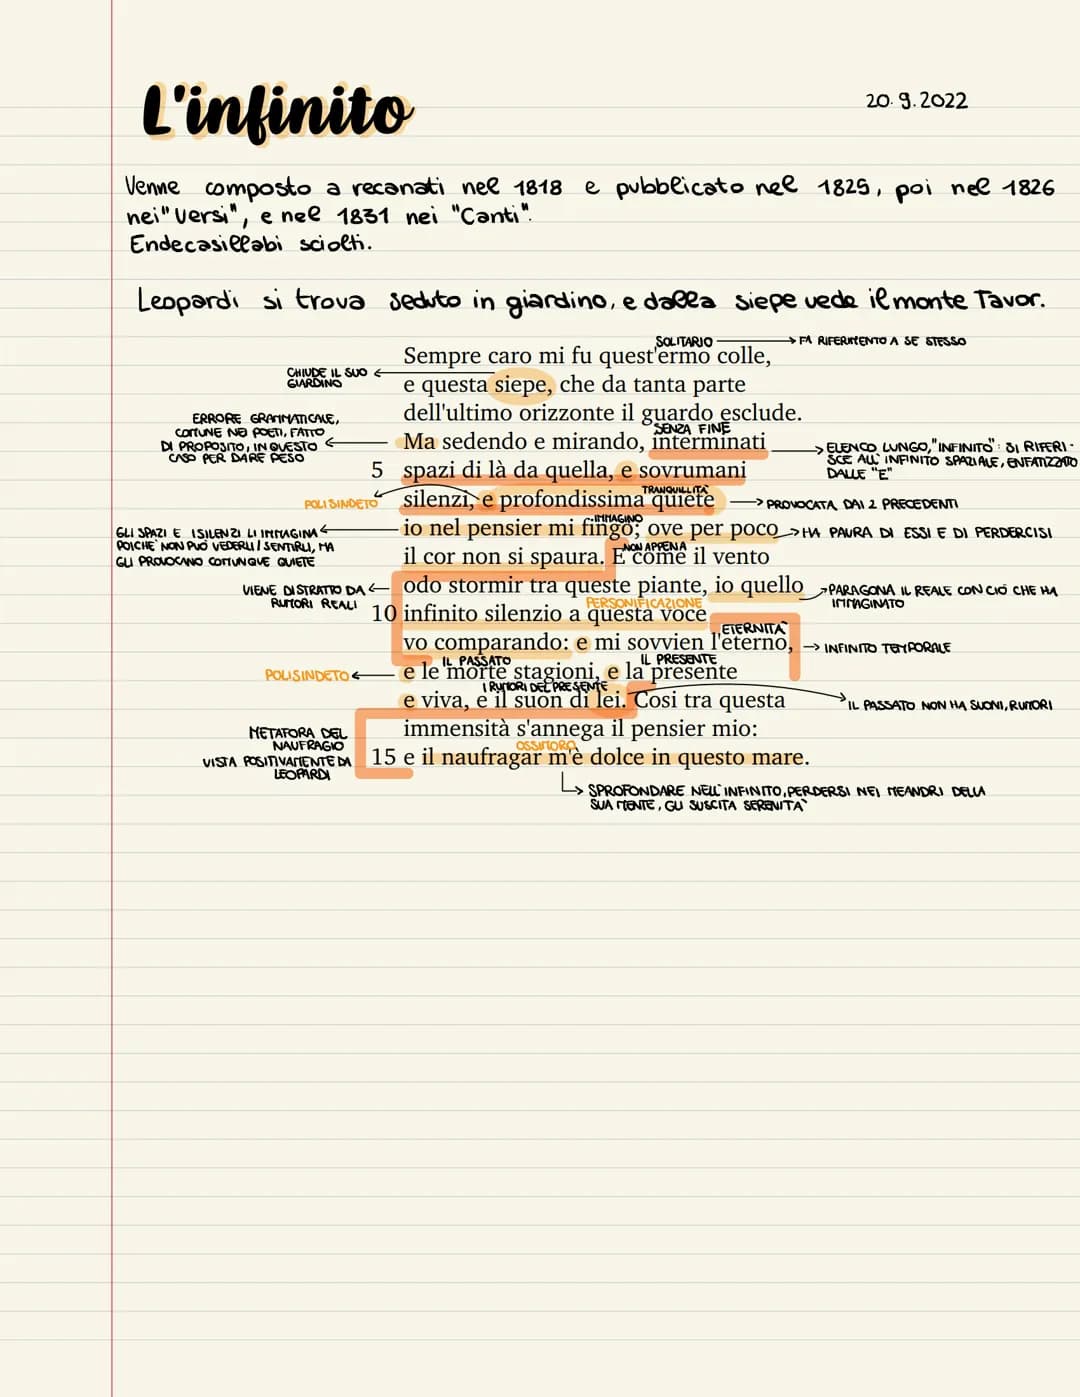 L'infinito
20.9.2022
Venne composto a recanati nel 1818 e pubblicato nel 1825, poi nel 1826
nei "Versi", e nel 1831 nei "Canti".
Endecasillabi sciolti.
Leopardi si trova seduto in giardino, e dalla siepe vede il monte Tavor.
SOLITARIO → FA RIFERIMENTO A SE STESSO
Sempre caro mi fu quest'ermo colle,
CHIUDE IL SUO
GIARDINO
e questa siepe, che da tanta parte
dell'ultimo orizzonte il guardo esclude.
ERRORE GRAMMATICALE,
COMUNE NEI POETI, FATTO
DI PROPOSITO, IN QUESTO
CASO PER DARE PESO
SENZA FINE
Ma sedendo e mirando, interminati
ELENCO LUNGO, "INFINITO": SI RIFERI-
SCE ALL'INFINITO SPAZIALE, ENFATIZZATO
DALLE "E"
5 spazi di là da quella, e sovrumani
TRANQUILLITÀ
POLISINDETO
silenzi, e profondissima quiete
PROVOCATA DAI 2 PRECEDENTI
GLI SPAZI E I SILENZI LI IMMAGINA
POICHÈ NON PUÒ VEDERLI/SENTIRLI, MA
GLI PROVOCANO COMUNQUE QUIETE
IMMAGINO
io nel pensier mi fingo; ove per poco
HA PAURA DI ESSI E DI PERDERCISI
NON APPENA
il cor non si spaura. E come il vento
VIENE DISTRATTO DA
RUMORI REALI
odo stormir tra queste piante, io quello
PARAGONA IL REALE CON CIÒ CHE HA
IMMAGINATO
PERSONIFICAZIONE
10 infinito silenzio a questa voce
ETERNITÀ
vo comparando: e mi sovvien l'eterno,
INFINITO TEMPORALE
IL PASSATO IL PRESENTE
POLISINDETO
e le morte stagioni, e la presente
I RUMORI DEL PRESENTE
e viva, e il suon di lei. Così tra questa
IL PASSATO NON HA SUONI, RUMORI
METAFORA DEL
NAUFRAGIO
VISTA POSITIVAMENTE DA
LEOPARDI
immensità s'annega il pensier mio:
OSSIMORO
15 e il naufragar m'è dolce in questo mare.
SPROFONDARE NELL'INFINITO, PERDERSI NEI MEANDRI DELLA
SUA MENTE, GLI SUSCITA SERENITÀ